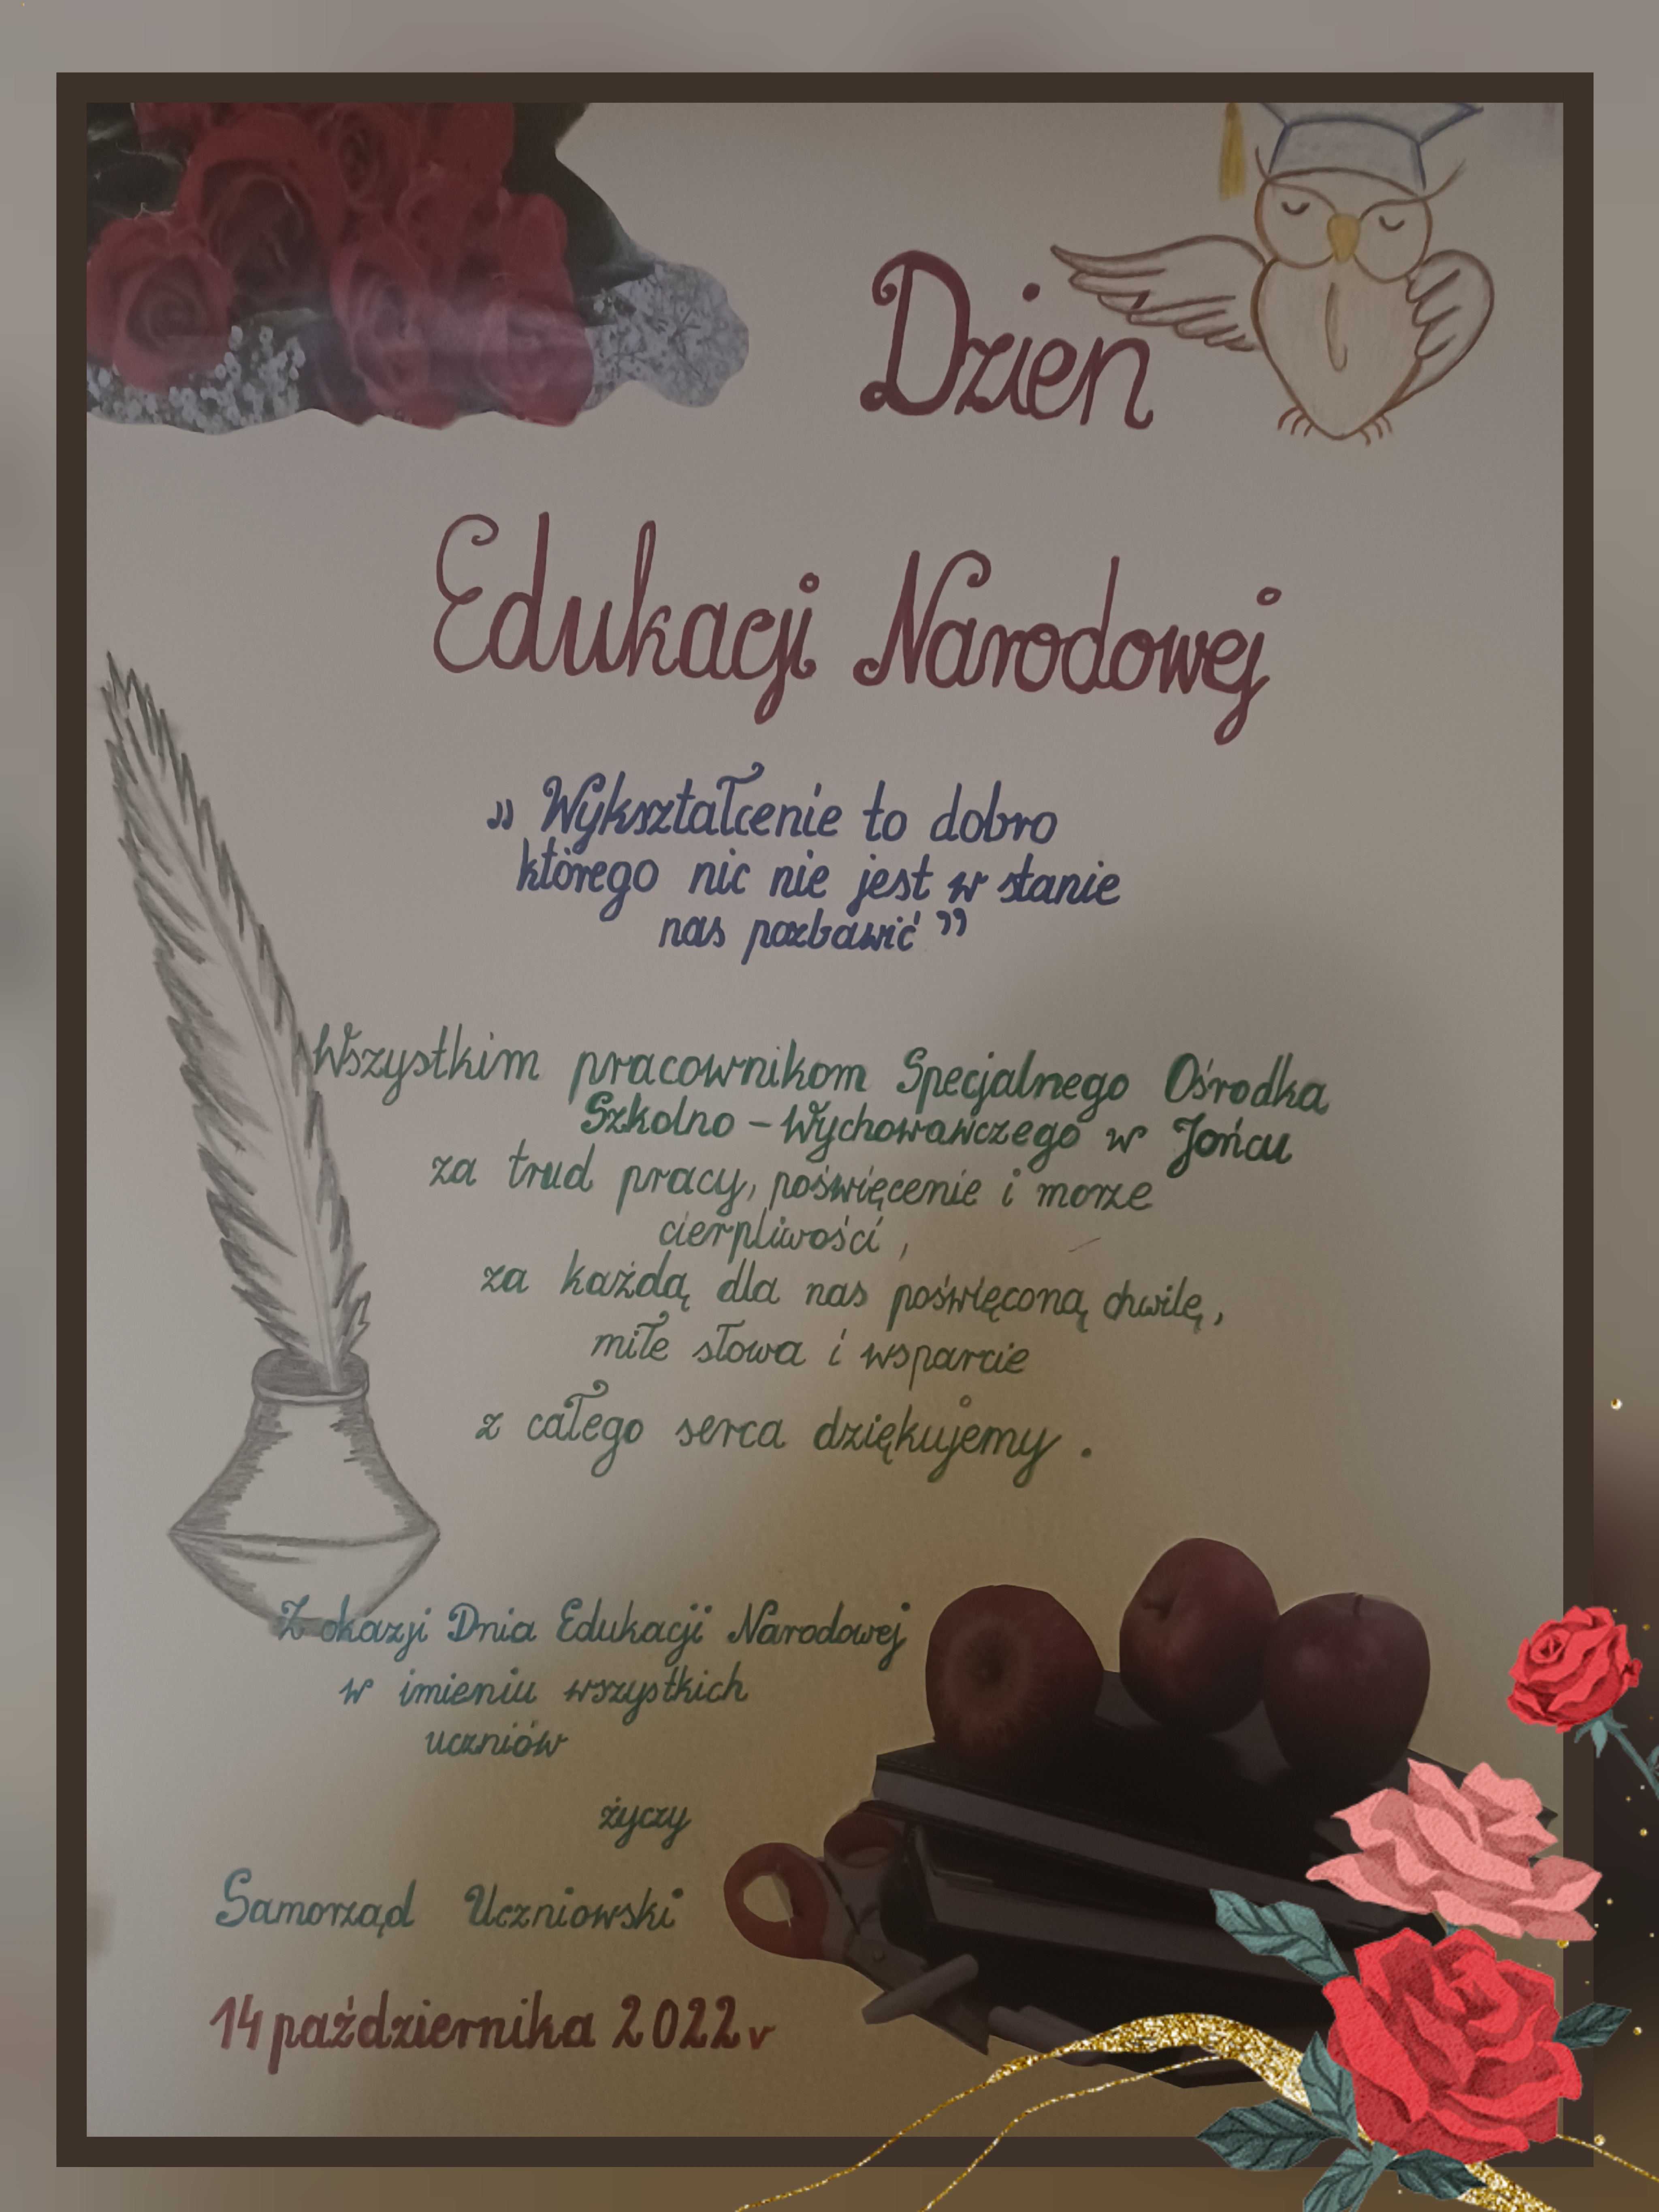 Dzień
Edukacji Narodowej
„ Wykształcenie to dobro
którego nic nie jest w stanie
nas pozbawić ”
Wszystkim pracownikom Specjalnego Ośrodka
Szkolno - Wychowawczego w Jońcu
za trud pracy, poświęcenie i morze
cierpliwości,
za każdą dla nas poświęconą chwilę,
miłe słowa i wsparcie
z całego serca dziękujemy.
Z okazji Dnia Edukacji Narodowej
w imieniu wszystkich
uczniów
życzy
Samorząd Uczniowski
14 października 2022 r